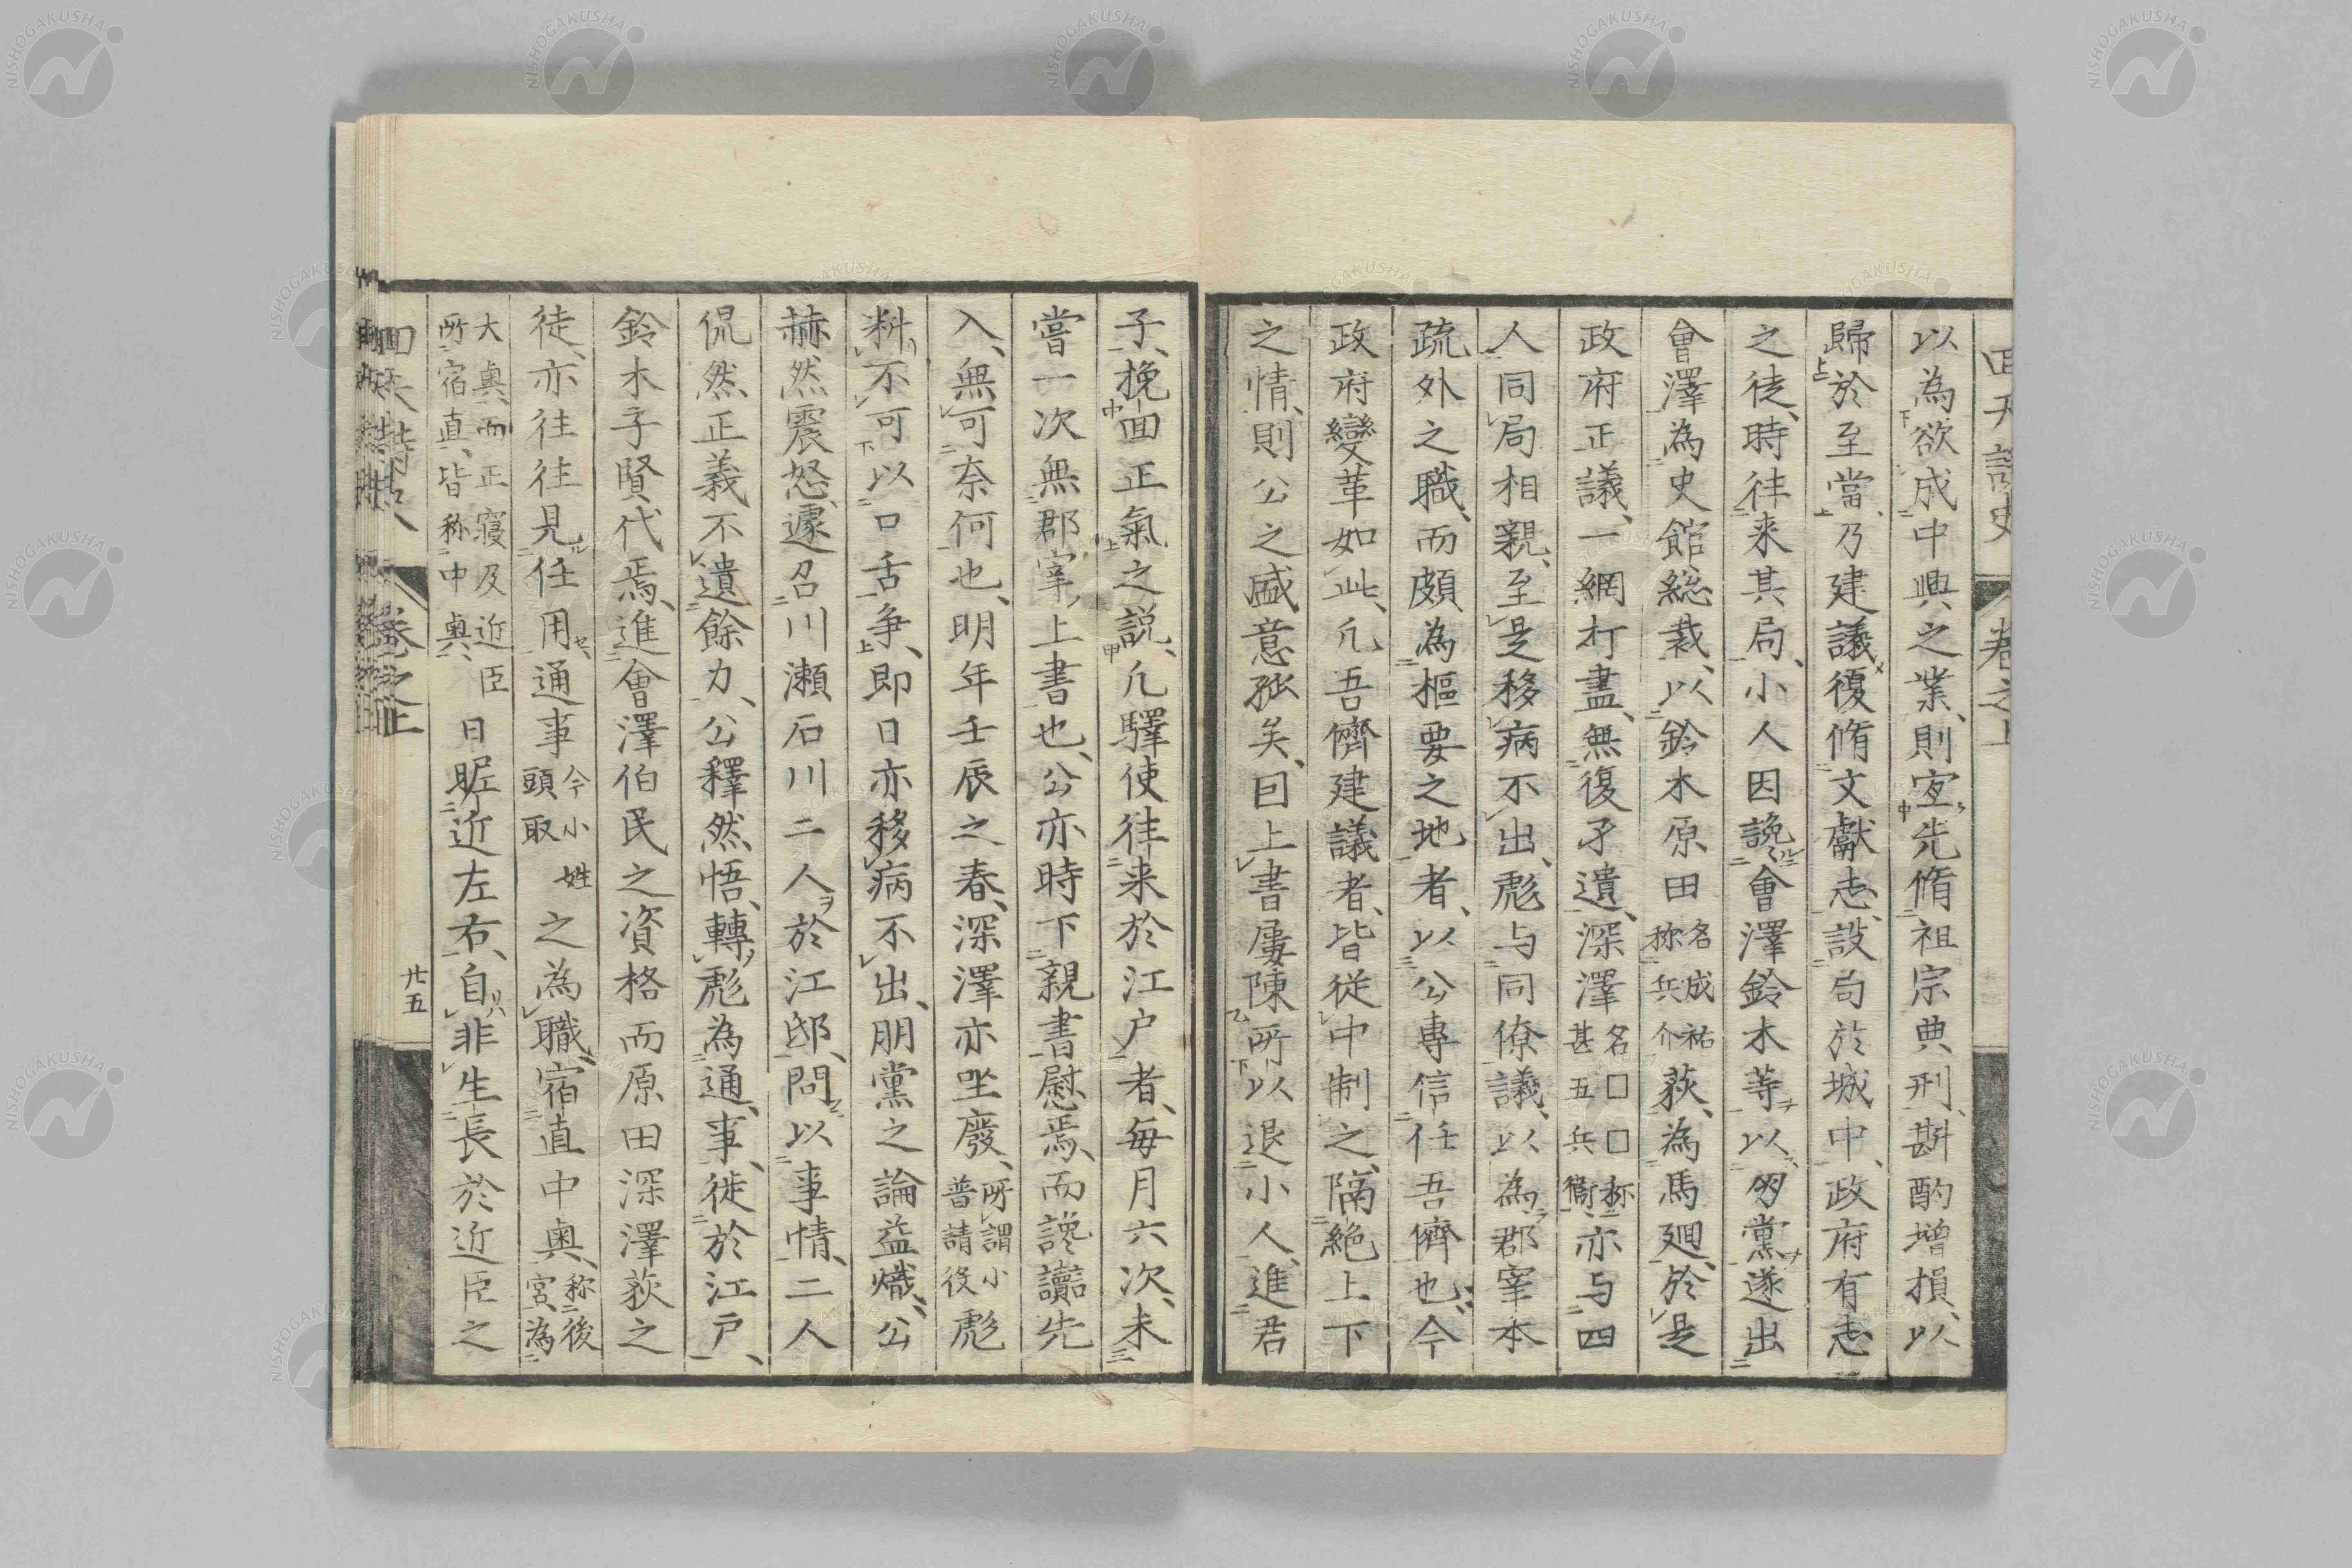 回天詩史 卷之上
以為欲成中興之業、則宜先脩祖宗典刑、斟酌增損、以
歸於至當、乃建議復脩文獻志、設局於城中、政府有志
之徒、時徃来其局、小人因讒會澤鈴木等以為黨遂出
會澤為史館総裁、以鈴木原田名成祐称兵介荻、為馬廻、於是
政府正議、一網打盡、無復孑遺、深澤名□□称甚五兵衛、亦与四
人同局相親、至是移病不出、彪与同僚議、以為郡宰本
疏外之職、而頗為樞要之地者、以公專信任吾儕也、今
政府變革如此、凢吾儕建議者、皆從中制之、隔絶上下
之情、則公之盛意孤矣、囙上書屢陳所以退小人、進君
子、挽回正氣之説、凢驛使徃来於江户者、每月六次、未
嘗一次無郡宰上書也、公亦時下親書慰焉、而讒讟先
入、無可奈何也、明年壬辰之春、深澤亦坐廢、所謂小普請役彪
料不可以口舌争、即日亦移病不出、朋黨之論益熾、公
赫然震怒、遽召川瀬石川二人於江邸、問以事情、二人
侃然正義不遺餘力、公釋然悟、轉彪為通事、徙於江戸、
鈴木子賢代焉、進會澤伯民之資格而原田深澤荻之
徒、亦往往見任用、通事今小姓頭取之為職、宿直中奥、称後宮為
大奥、而正寝及近臣所宿直、皆称中奥、日昵近左右、自非生長於近臣之
回天詩史 卷之上 廿五